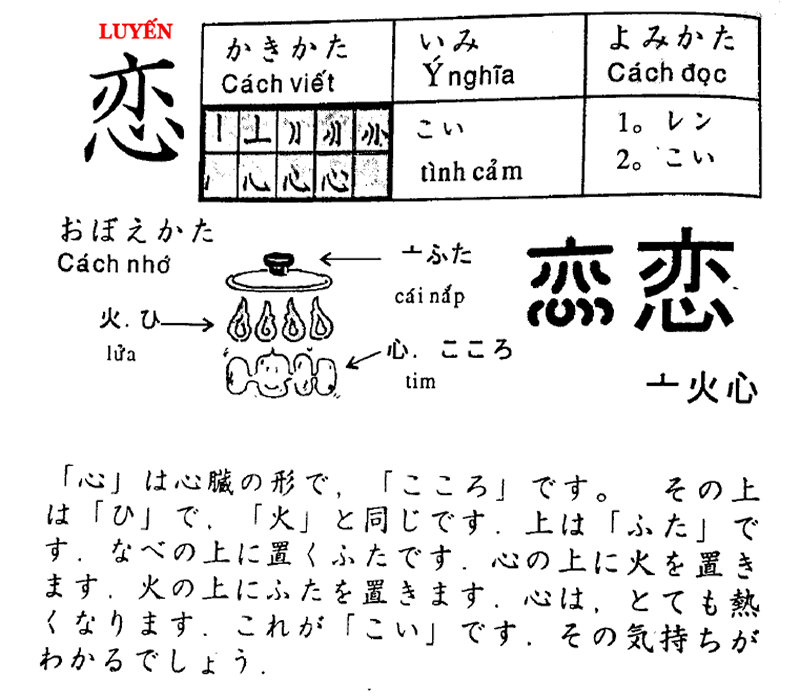 LUYẾN
恋
かきかた
Cách viết
いみ
Ý nghĩa
よみかた
Cách đọc
こい
tình cảm
1。レン
2。こい
おぼえかた
Cách nhớ
亠ふた
cái nắp
火．ひ
lửa
心．こころ
tim
恋
亠火心
「心」は心臓の形で，「こころ」です。　その上
は「ひ」で．「火」と同じです．上は「ふた」で
す．なべの上に置くふたです．心の上に火を置き
ます．火の上にふたを置きます．心は，とても熱
くなります．これが「こい」です．その気持ちが
わかるでしょう．